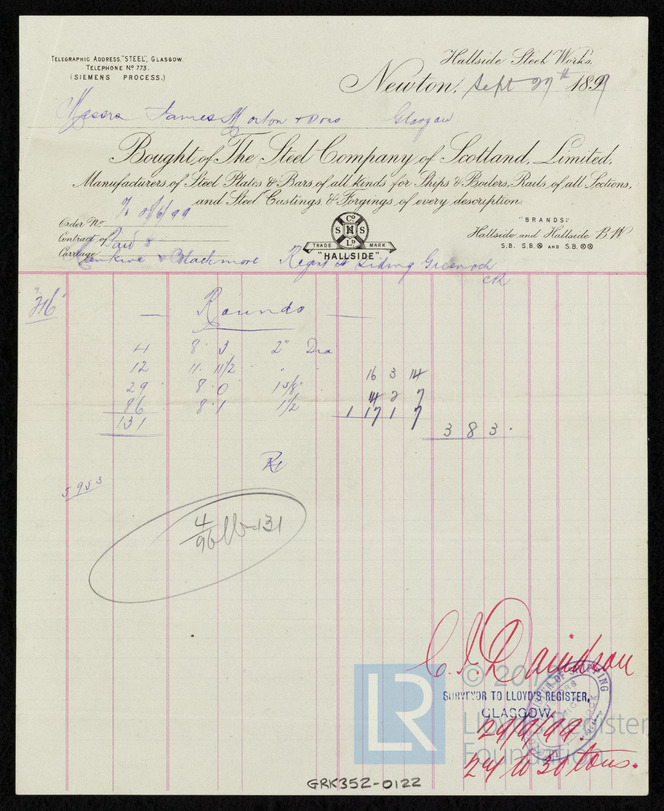 TELEGRAPHIC ADDRESS, "STEEL", GLASGOW.
TELEPHONE Nº 773.
(SIEMENS PROCESS.)
Hallside Steel Works,
Newton, Sept 29th 1899
Messrs James Morton & Sons Glasgow
Bought of The Steel Company of Scotland, Limited,
Manufacturers of Steel Plates & Bars of all kinds for Ships & Boilers, Rails of all Sections,
and Steel Castings & Forgings of every description.
Order No
Contract of
Carriage
Rankine & Blackmore Siding Greenock
S Cº N S Lº
TRADE MARK
"HALLSIDE"
"BRANDS:"
Hallside and Hallside B.W
S.B. S.B. AND S.B.
"316"
Rounds
4 8 . 3 2" Dia
12 11 . 11 1/2 "
16 3 14
29 8 . 0 1 5/8
14 2 7
86 8 . 1 1 1/2
1 17 1 7
131
3 8 3 .
5953
4/96 131
Davidson
SURVEYOR TO LLOYD'S REGISTER,
GLASGOW.
29/9/99.
24 to 30 tons.
LR
© 20
Lloyd's Register
Foundation
GRK352-0122